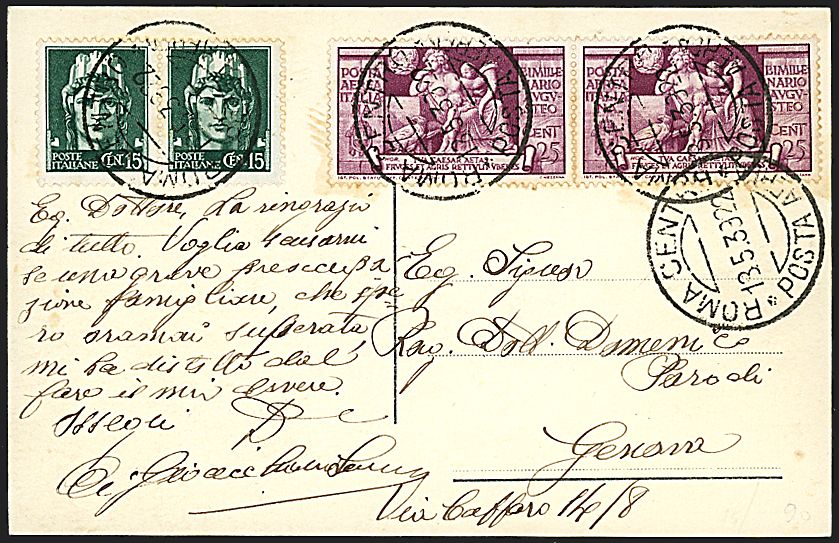 POSTE ITALIANE CEN. 15
POSTE ITALIANE CEN. 15
POSTA AEREA ITALIA BIMILLENARIO AVGVSTEO CENT 25
TVA CAESAR AETAS
FRVGES ET AGRIS RETTVLIT VBERES
POSTA AEREA ITALIA BIMILLENARIO AVGVSTEO CENT 25
TVA CAESAR AETAS
FRVGES ET AGRIS RETTVLIT VBERES
ROMA CENTRO * POSTA AEREA
13.5.38 22
Eg. Dottore, La ringrazio
di tutto. Voglia scusarmi
se una grave preoccupa
zione famigliare, che spe
ro oramai superata,
mi ha distolto dal
fare il mio dovere.
Ossequi
Eg. Signor
Rag. Dott. Domenico
Parodi
Genova
Via Caffaro 14/8
90